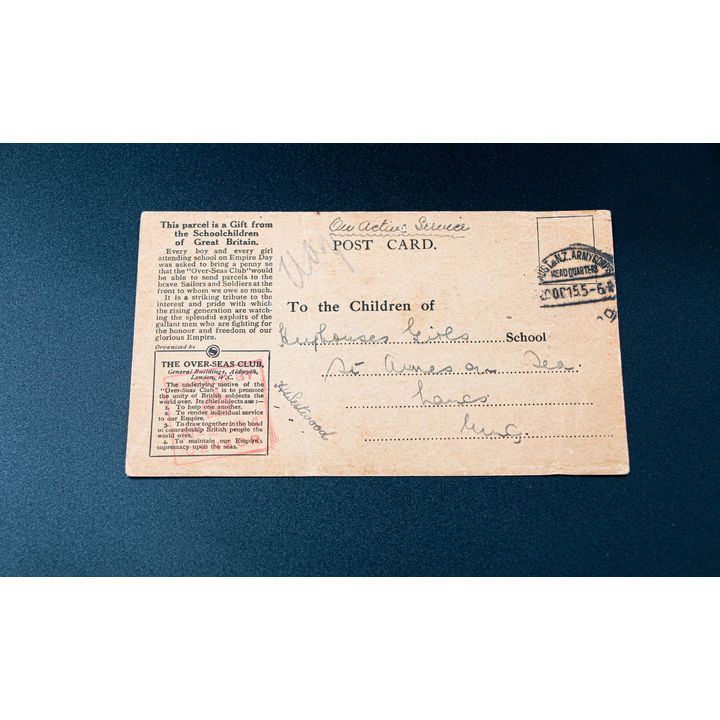 This parcel is a Gift from
the Schoolchildren
of Great Britain.
Every boy and every girl
attending school on Empire Day
was asked to bring a penny so
that the "Over-Seas Club" would
be able to send parcels to the
brave Sailors and Soldiers at the
front to whom we owe so much.
It is a striking tribute to the
interest and pride with which
the rising generation are watch-
ing the splendid exploits of the
gallant men who are fighting for
the honour and freedom of our
glorious Empire.
Organised by
S
THE OVER-SEAS CLUB,
General Buildings, Aldwych,
London, W.C.
The underlying motive of the
"Over-Seas Club" is to promote
the unity of British subjects the
world over. Its chief objects are :—
1. To help one another.
2. To render individual service
to our Empire.
3. To draw together in the bond
of comradeship British people the
world over.
4. To maintain our Empire's
supremacy upon the seas.
On Active Service
POST CARD.
AUST & N.Z. ARMY CORPS
HEADQUARTERS
OC 15 5-6
To the Children of
Heyhouses Girls School
St Annes on Sea
Lancs
Eng